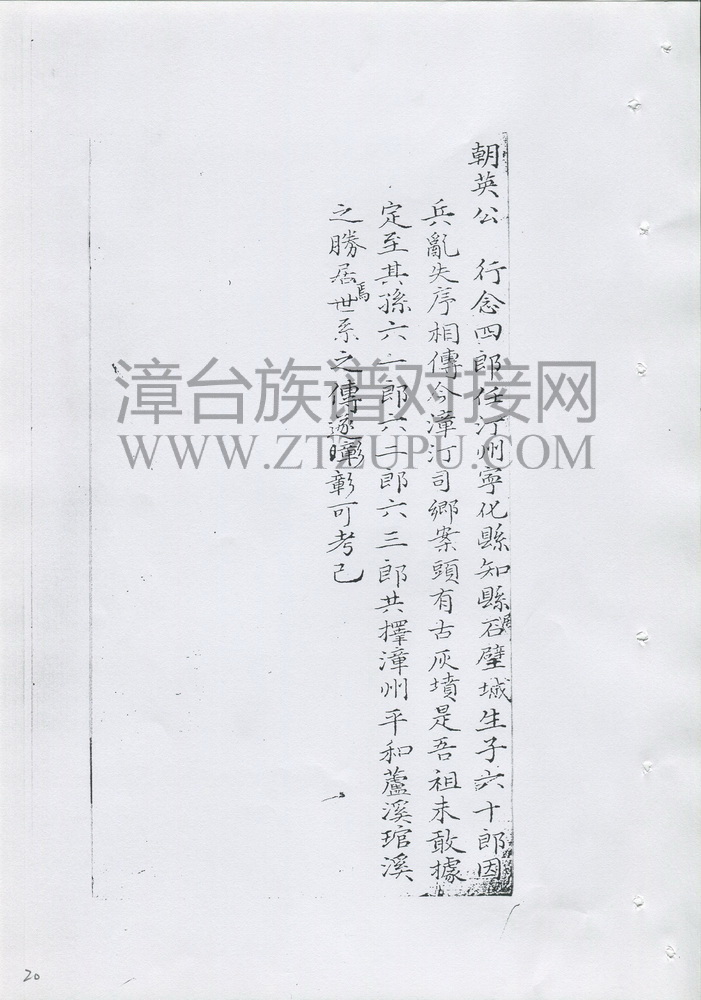 朝英公 行念四郎任汀州寧化縣知縣居石壁城生子六十郎因
兵亂失序相傳今漳汀司鄉案頭有古灰墳是吾祖未敢據
定至其孫六一郎六二郎六三郎共擇漳州平和蘆溪琯溪
之勝居焉世系之傳遂彰彰可考已
漳台族谱对接网
WWW.ZTZUPU.COM
20